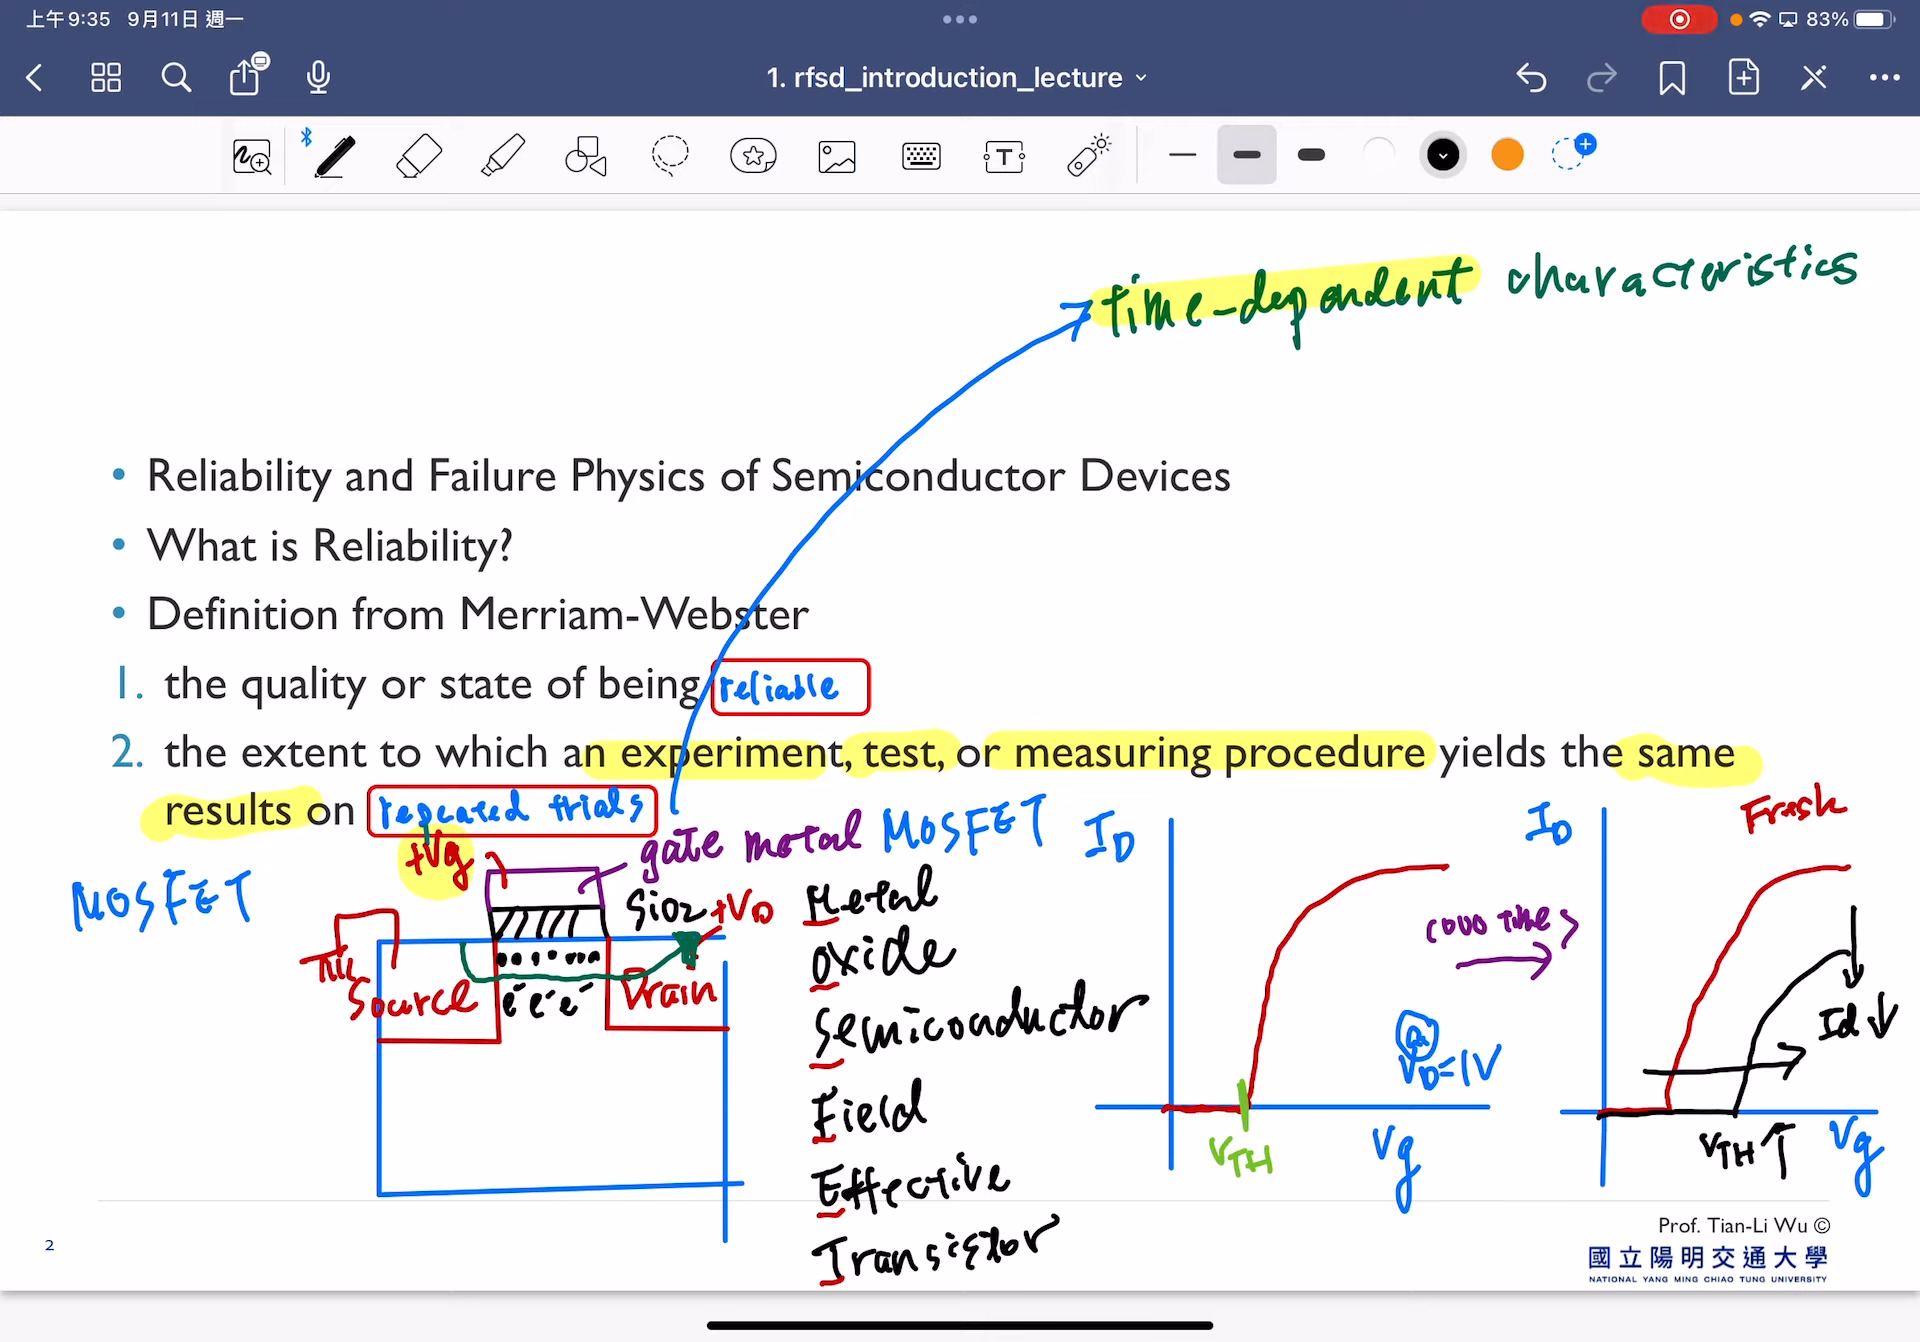 上午9:35 9月11日 週一
83%
1. rfsd_introduction_lecture
T
time-dependent characteristics
• Reliability and Failure Physics of Semiconductor Devices
• What is Reliability?
• Definition from Merriam-Webster
1. the quality or state of being reliable
2. the extent to which an experiment, test, or measuring procedure yields the same
results on repeated trials
+Vg
gate metal
MOSFET
ID
ID
Fresh
MOSFET
SiO2
+VD
Metal
Oxide
Semiconductor
Field
Effective
Transistor
Source
e- e- e-
Drain
@
VD=1V
VTH
Vg
Id↓
VTH↑
Vg
2
Prof. Tian-Li Wu ©
國立陽明交通大學
NATIONAL YANG MING CHIAO TUNG UNIVERSITY